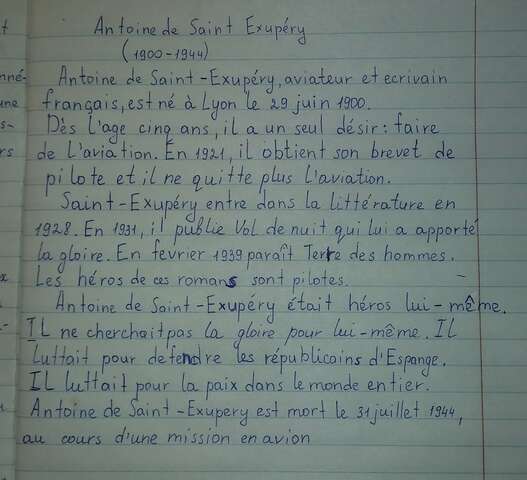 Antoine de Saint Exupéry
(1900-1944)
Antoine de Saint-Exupéry, aviateur et ecrivain
français, est né à Lyon le 29 juin 1900.
Dès l'age cinq ans, il a un seul désir: faire
de l'aviation. En 1921, il obtient son brevet de
pilote et il ne quitte plus l'aviation.
Saint-Exupéry entre dans la littérature en
1928. En 1931, il publie Vol de nuit qui lui a apporté
la gloire. En fevrier 1939 paraît Terre des hommes.
Les héros de ces romans sont pilotes.
Antoine de Saint-Exupéry était héros lui-même.
IL ne cherchait pas la gloire pour lui-même. Il
luttait pour defendre les républicains d'Espange.
Il luttait pour la paix dans le monde entier.
Antoine de Saint-Exupery est mort le 31 juillet 1944,
au cours d'une mission en avion